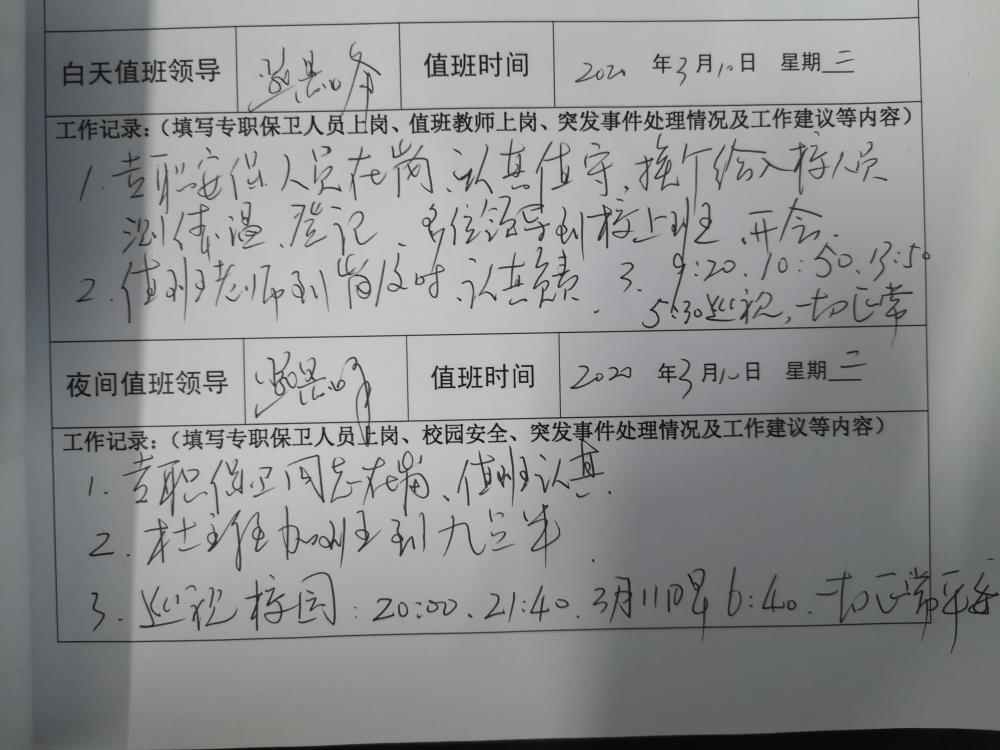 白天值班领导 值班时间 2020 年3月10日 星期二
工作记录：（填写专职保卫人员上岗、值班教师上岗、突发事件处理情况及工作建议等内容）
1.专职安保人员在岗、认真值守、挨个给入校人员
测体温、登记、多位领导到校上班、开会.
2.值班老师到岗及时、认真负责. 3. 9:20、10:50、13:50
5:30巡视，一切正常
夜间值班领导 值班时间 2020 年3月10日 星期二
工作记录：（填写专职保卫人员上岗、校园安全、突发事件处理情况及工作建议等内容）
1.专职保卫同志在岗、值班认真.
2.杜主任加班到九点半.
3.巡视校园：20:00、21:40、3月11日早6:40、一切正常平安